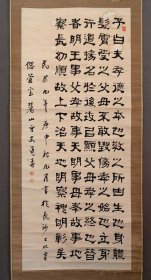 子曰夫孝德之本也教之所由生也身體
髮膚受之父母不敢毀傷孝之始也立身行
道揚名於後世以顯父母孝之終也昔
者明王事父孝故事天明事母孝故事地
察長幼順故上下治天地明察神明彰矣
民國九年庚申秋九月書於長沙
麓山